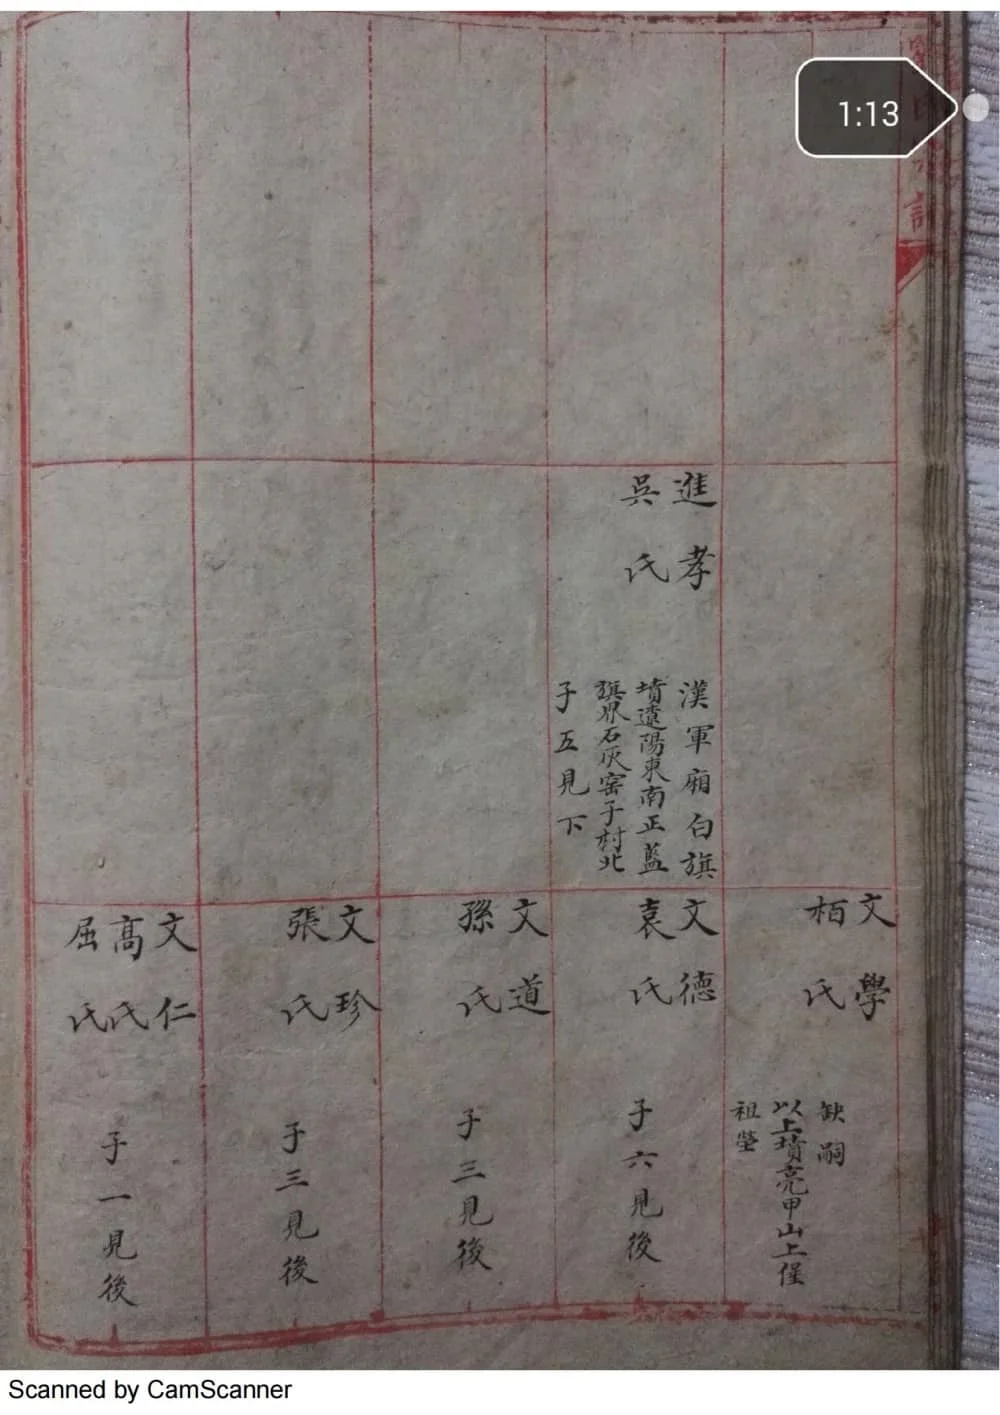 1:13
進孝
吳氏
漢軍廂白旗
墳遼陽東南正藍
旗界石灰窑子村北
子五見下
文學
栢氏
缺嗣
以上墳亮甲山上僅
祖塋
文德
袁氏
子六見後
文道
孫氏
子三見後
文珍
張氏
子三見後
文仁
高氏
屈氏
子一見後
Scanned by CamScanner